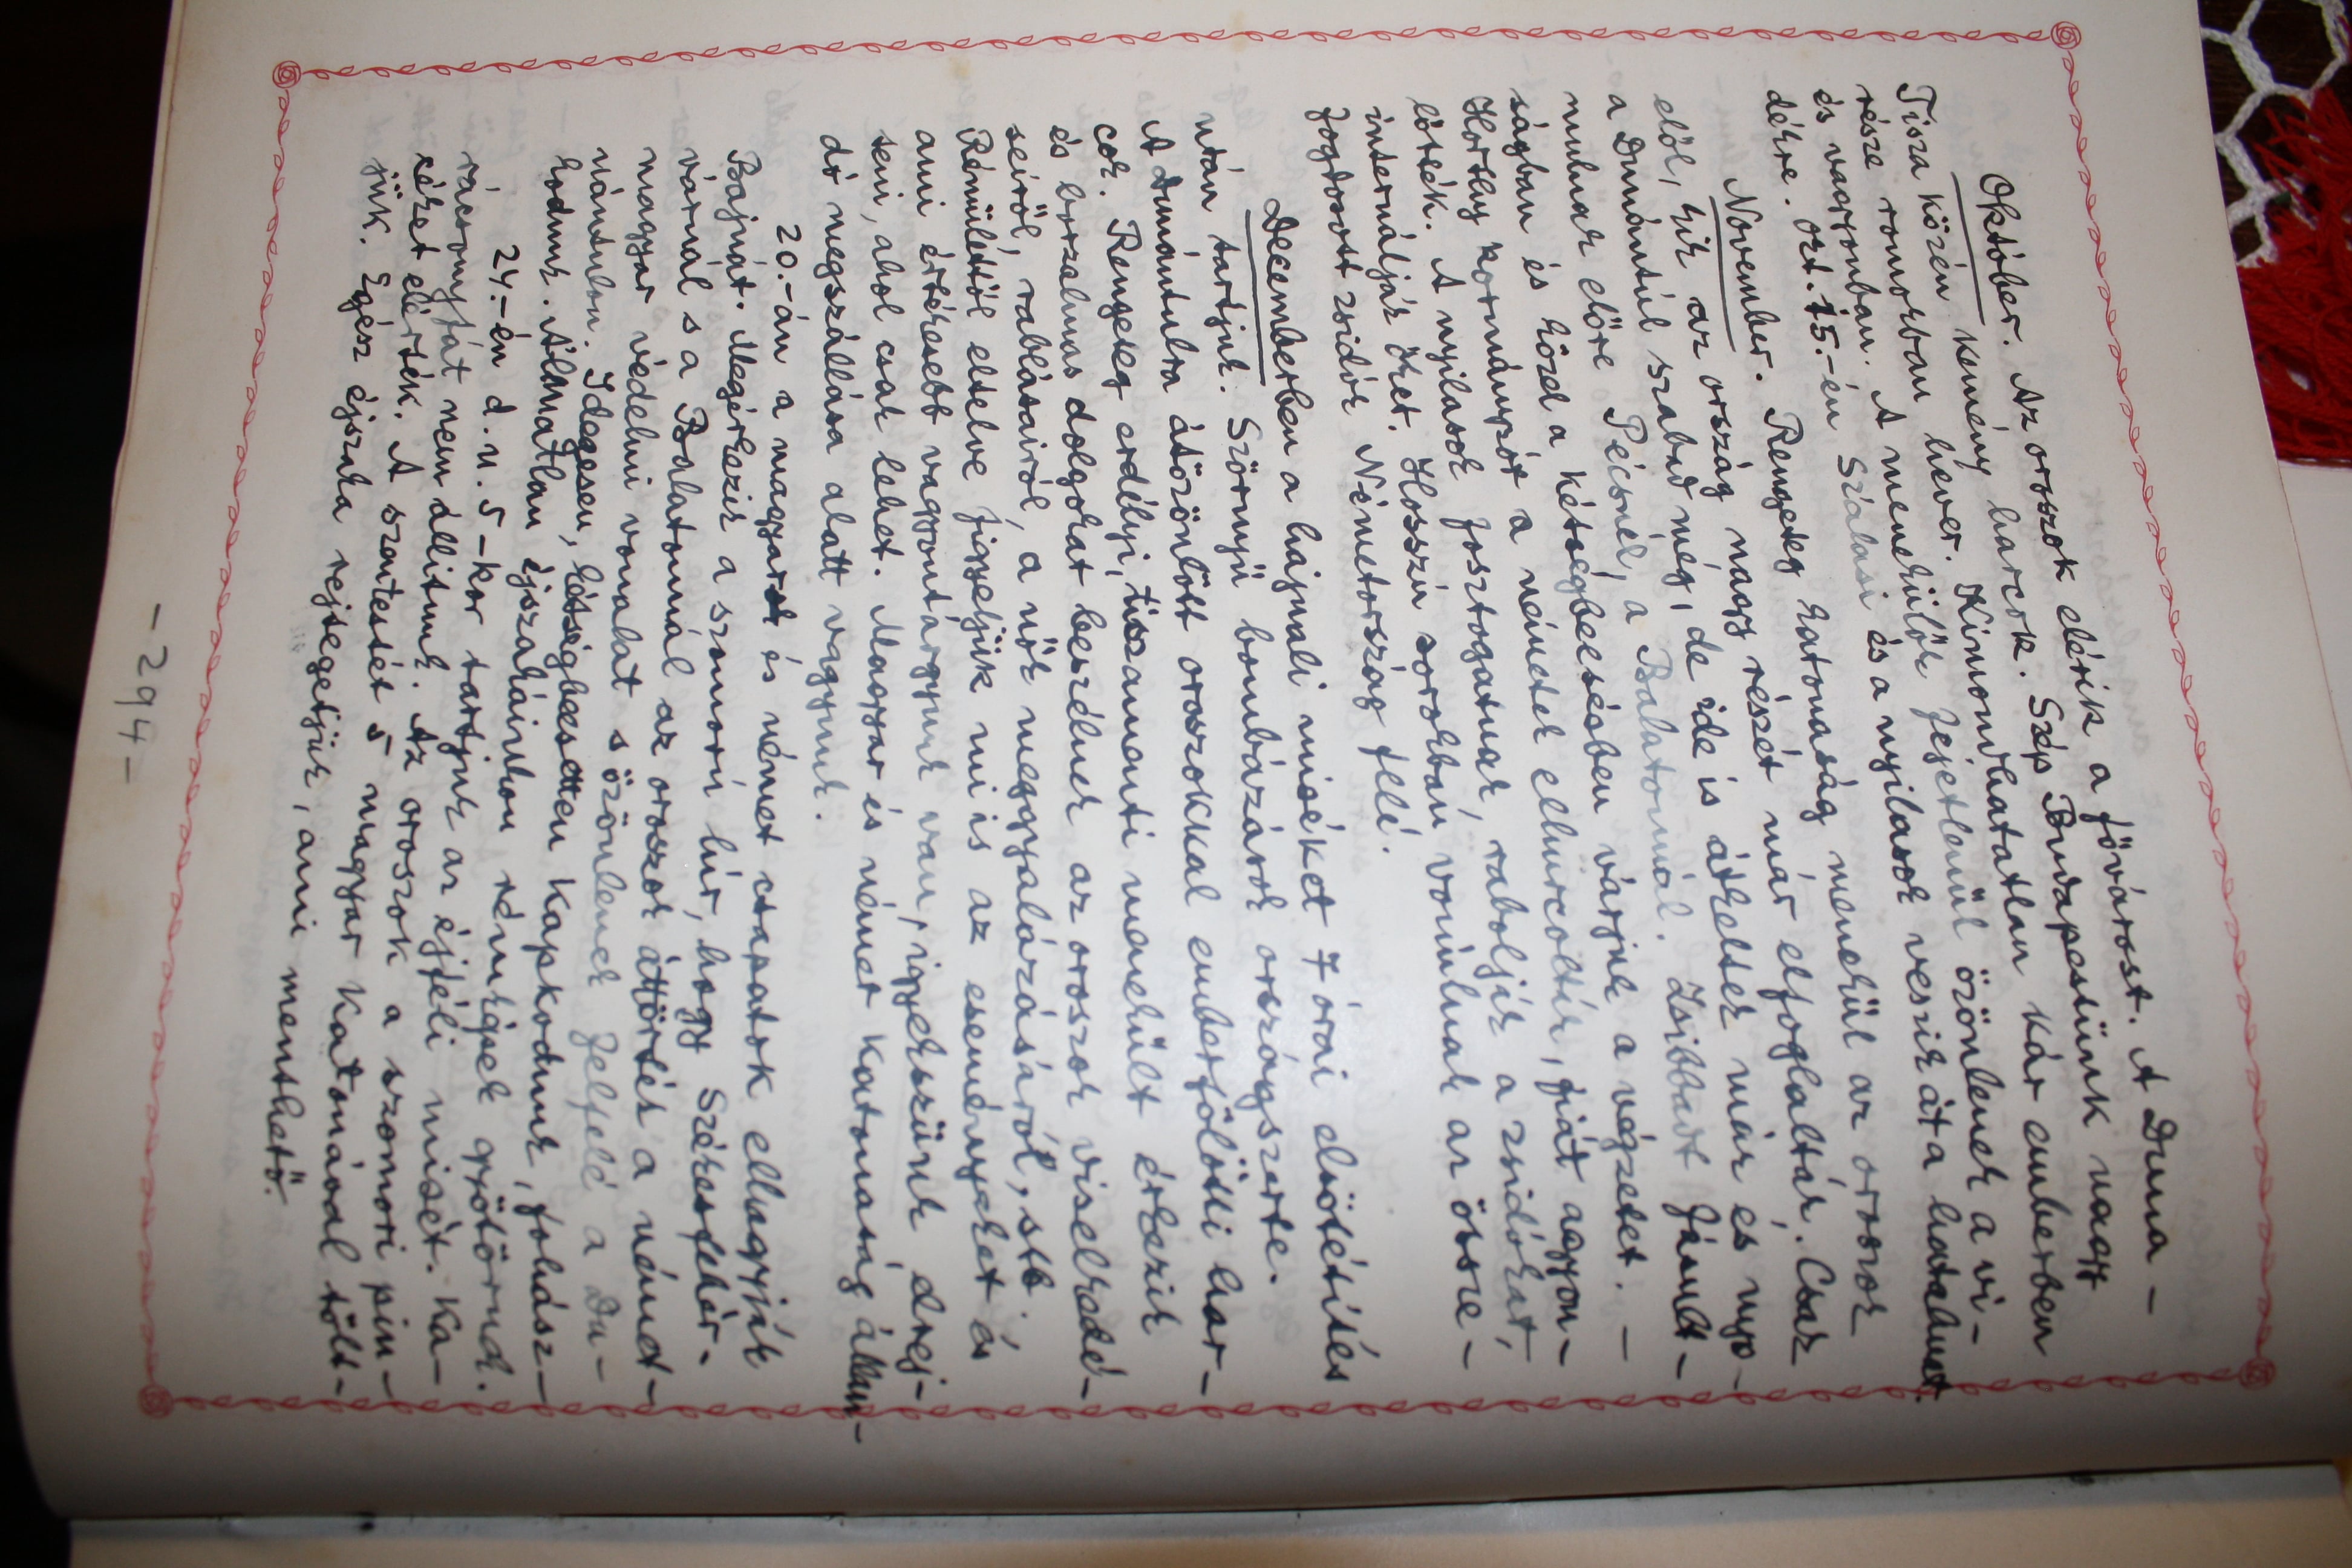 Október. Az oroszok elérik a fővárost. A Duna –
Tisza közén kemény harcok. Szép Budapestünk nagy
része romokban hever. Kimondhatatlan kár emberben
és vagyonban. A menekülők fejetlenül özönlenek a vi-
dékre. Okt. 15.-én Szálasi és a nyilasok veszik át a hatalmat.
November. Rengeteg katonaság menekül az oroszok
elől, kik az ország nagy részét már elfoglalták. Csak
a Dunántúl szabad még, de ide is átkeltek már és nyo-
mulnak előre Pécsnél, a Balatonnál. Zsibbadt fásult-
ságban és közel a kétségbeeséshez várjuk a végzetet. –
Horthy kormányzót a németek elhurcolták, fiát agyon-
lőtték. A nyilasok fosztogatnak, rabolják a zsidókat,
internálják őket. Hosszú sorokban vonulnak az össze-
fogdosott zsidók Németország felé.
Decemberben a hajnali miséket 7 órai elsötétítés
után tartjuk. Szörnyű bombázások országszerte.
A Dunántulra átözönlött oroszokkal emberfölötti har-
cok. Rengeteg erdélyi, tiszamenti menekült érkezik
és borzalmas dolgokat beszélnek az oroszok viselkedé-
séről, rablásairól, a nők meggyalázásáról, stb.
Rémülettől eltelve figyeljük mi is az eseményeket és
ami értékesebb vagyontárgyunk van, igyekszünk elrej-
teni, ahol csak lehet. Magyar és német katonaság állan-
dó megszállása alatt vagyunk.
20.-án a magyar és német csapatok elhagyják
Bajnát. Megérkezik a szomorú hír, hogy Székesfehér-
várnál s a Balatonnál az oroszok áttörték a német-
magyar védelmi vonalat s özönlenek felfelé a Du-
nántulon. Idegesen, kétségbeesetten kapkodunk, fohász-
kodunk. Álmatlan éjszakáinkon rémképek gyötörnek.
24.-én d. u. 5-kor tartjuk az éjféli misét. Ka-
rácsonyfát nem állitunk. Az oroszok a szomori pin-
céket elérték. A szentestét 5 magyar katonával tölt-
jük. Egész éjszaka rejtegetjük, ami menthető.
– 294 –